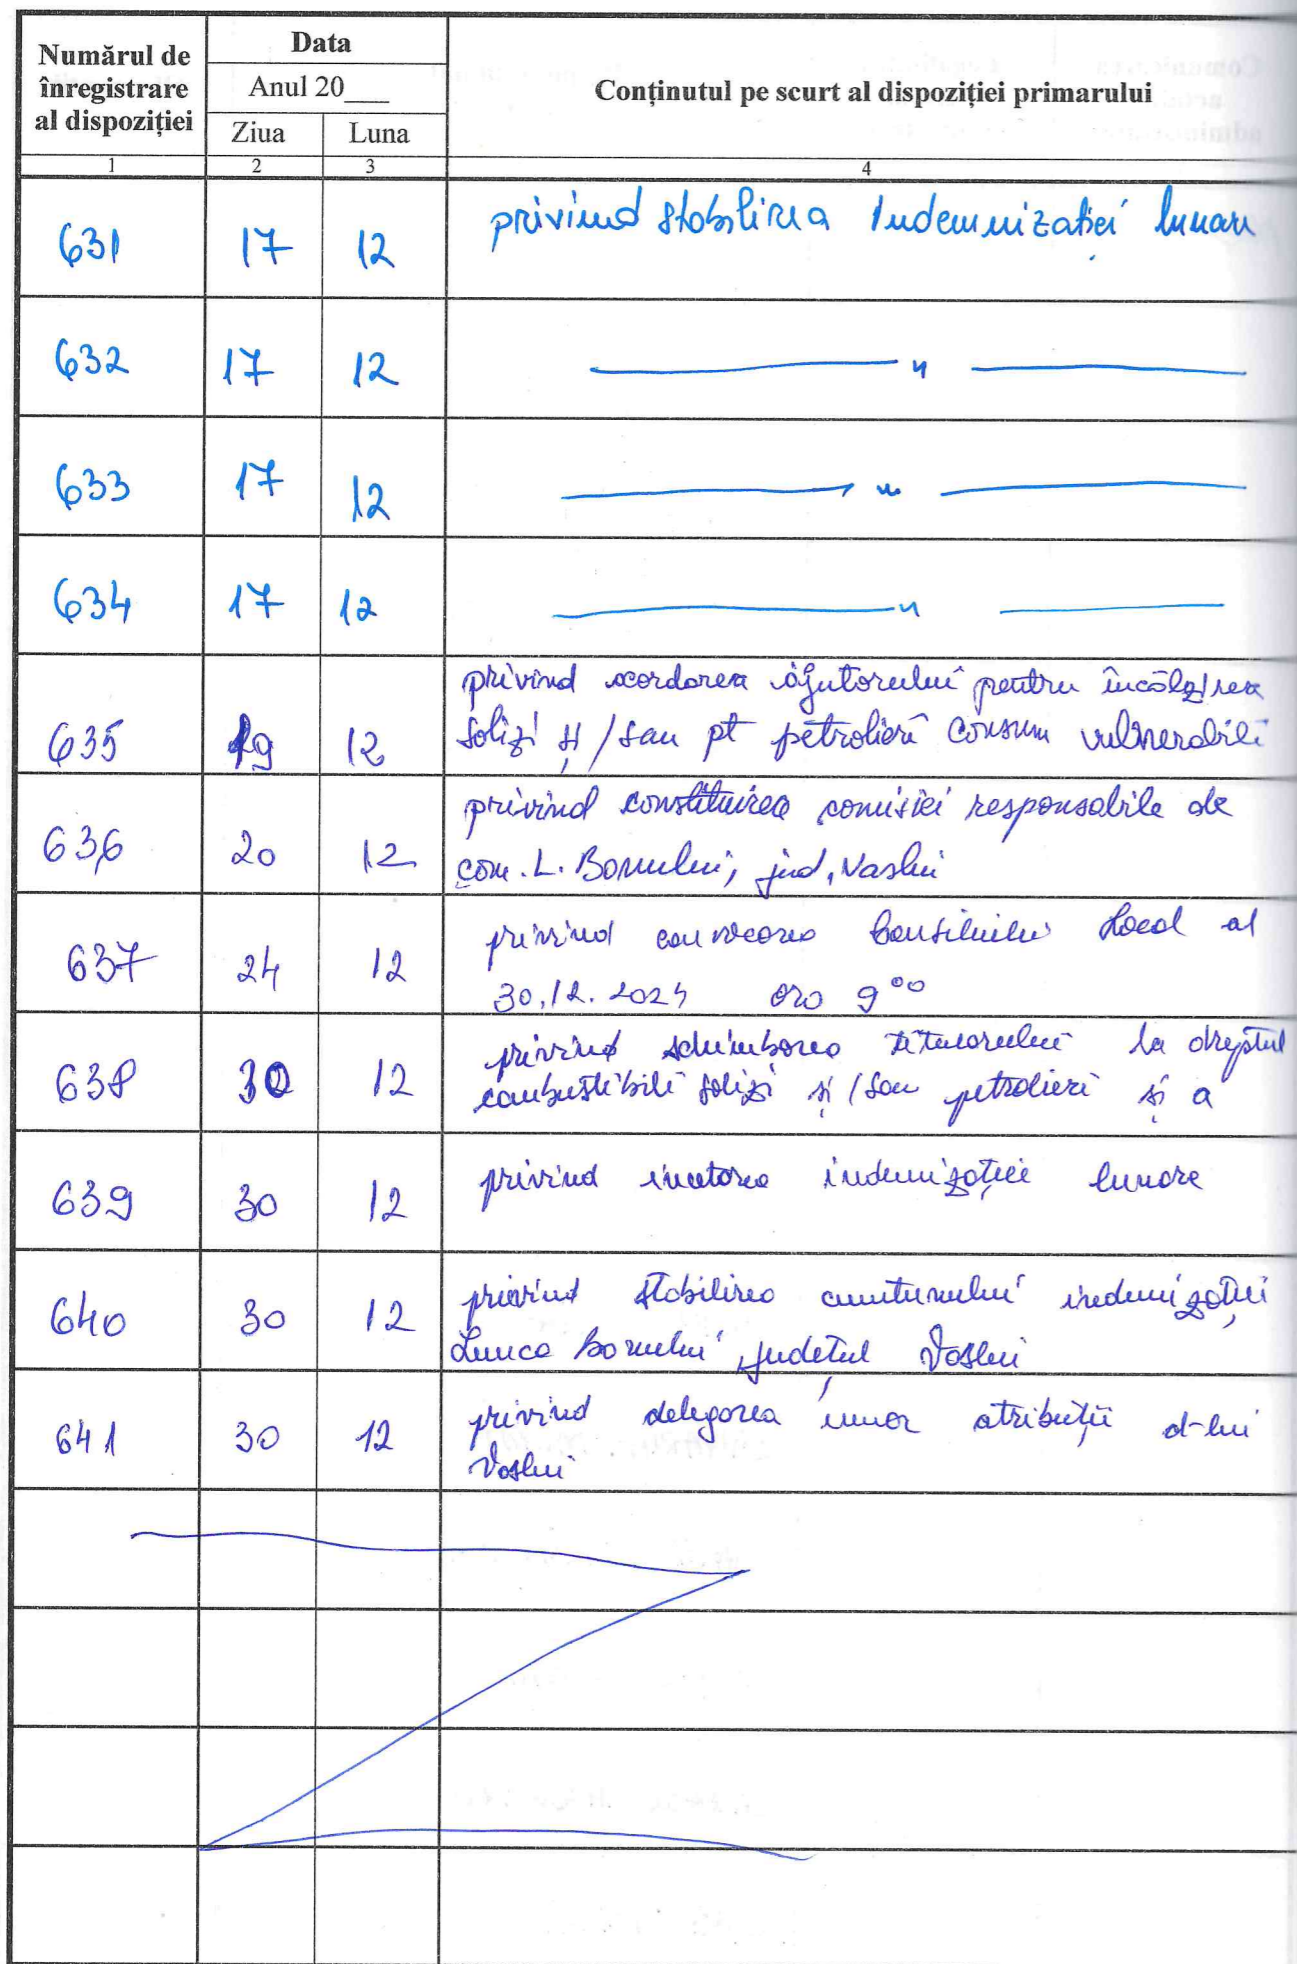 Numărul de înregistrare al dispoziției
Data
Anul 20___
Ziua Luna
Conținutul pe scurt al dispoziției primarului
1 2 3 4
631 17 12 privind stabilirea Indemnizației lunare
632 17 12 —— " ——
633 17 12 —— " ——
634 17 12 —— " ——
635 19 12 privind acordarea ajutorului pentru încălzirea
solizi și / sau pt petrolieri consum vulnerabili
636 20 12 privind constituirea comisiei responsabile de
com. L. Banului, jud, Vaslui
637 24 12 privind convocarea Consiliului Local al
30.12.2024 ora 9⁰⁰
638 30 12 privind schimbarea titularului la dreptul
combustibili solizi și / sau petrolieri și a
639 30 12 privind indemnizației lunare
640 30 12 privind stabilirea cuantumului indemnizației
Lunca Banului, județul Vaslui
641 30 12 privind delegarea unor atribuții d-lui
Vaslui